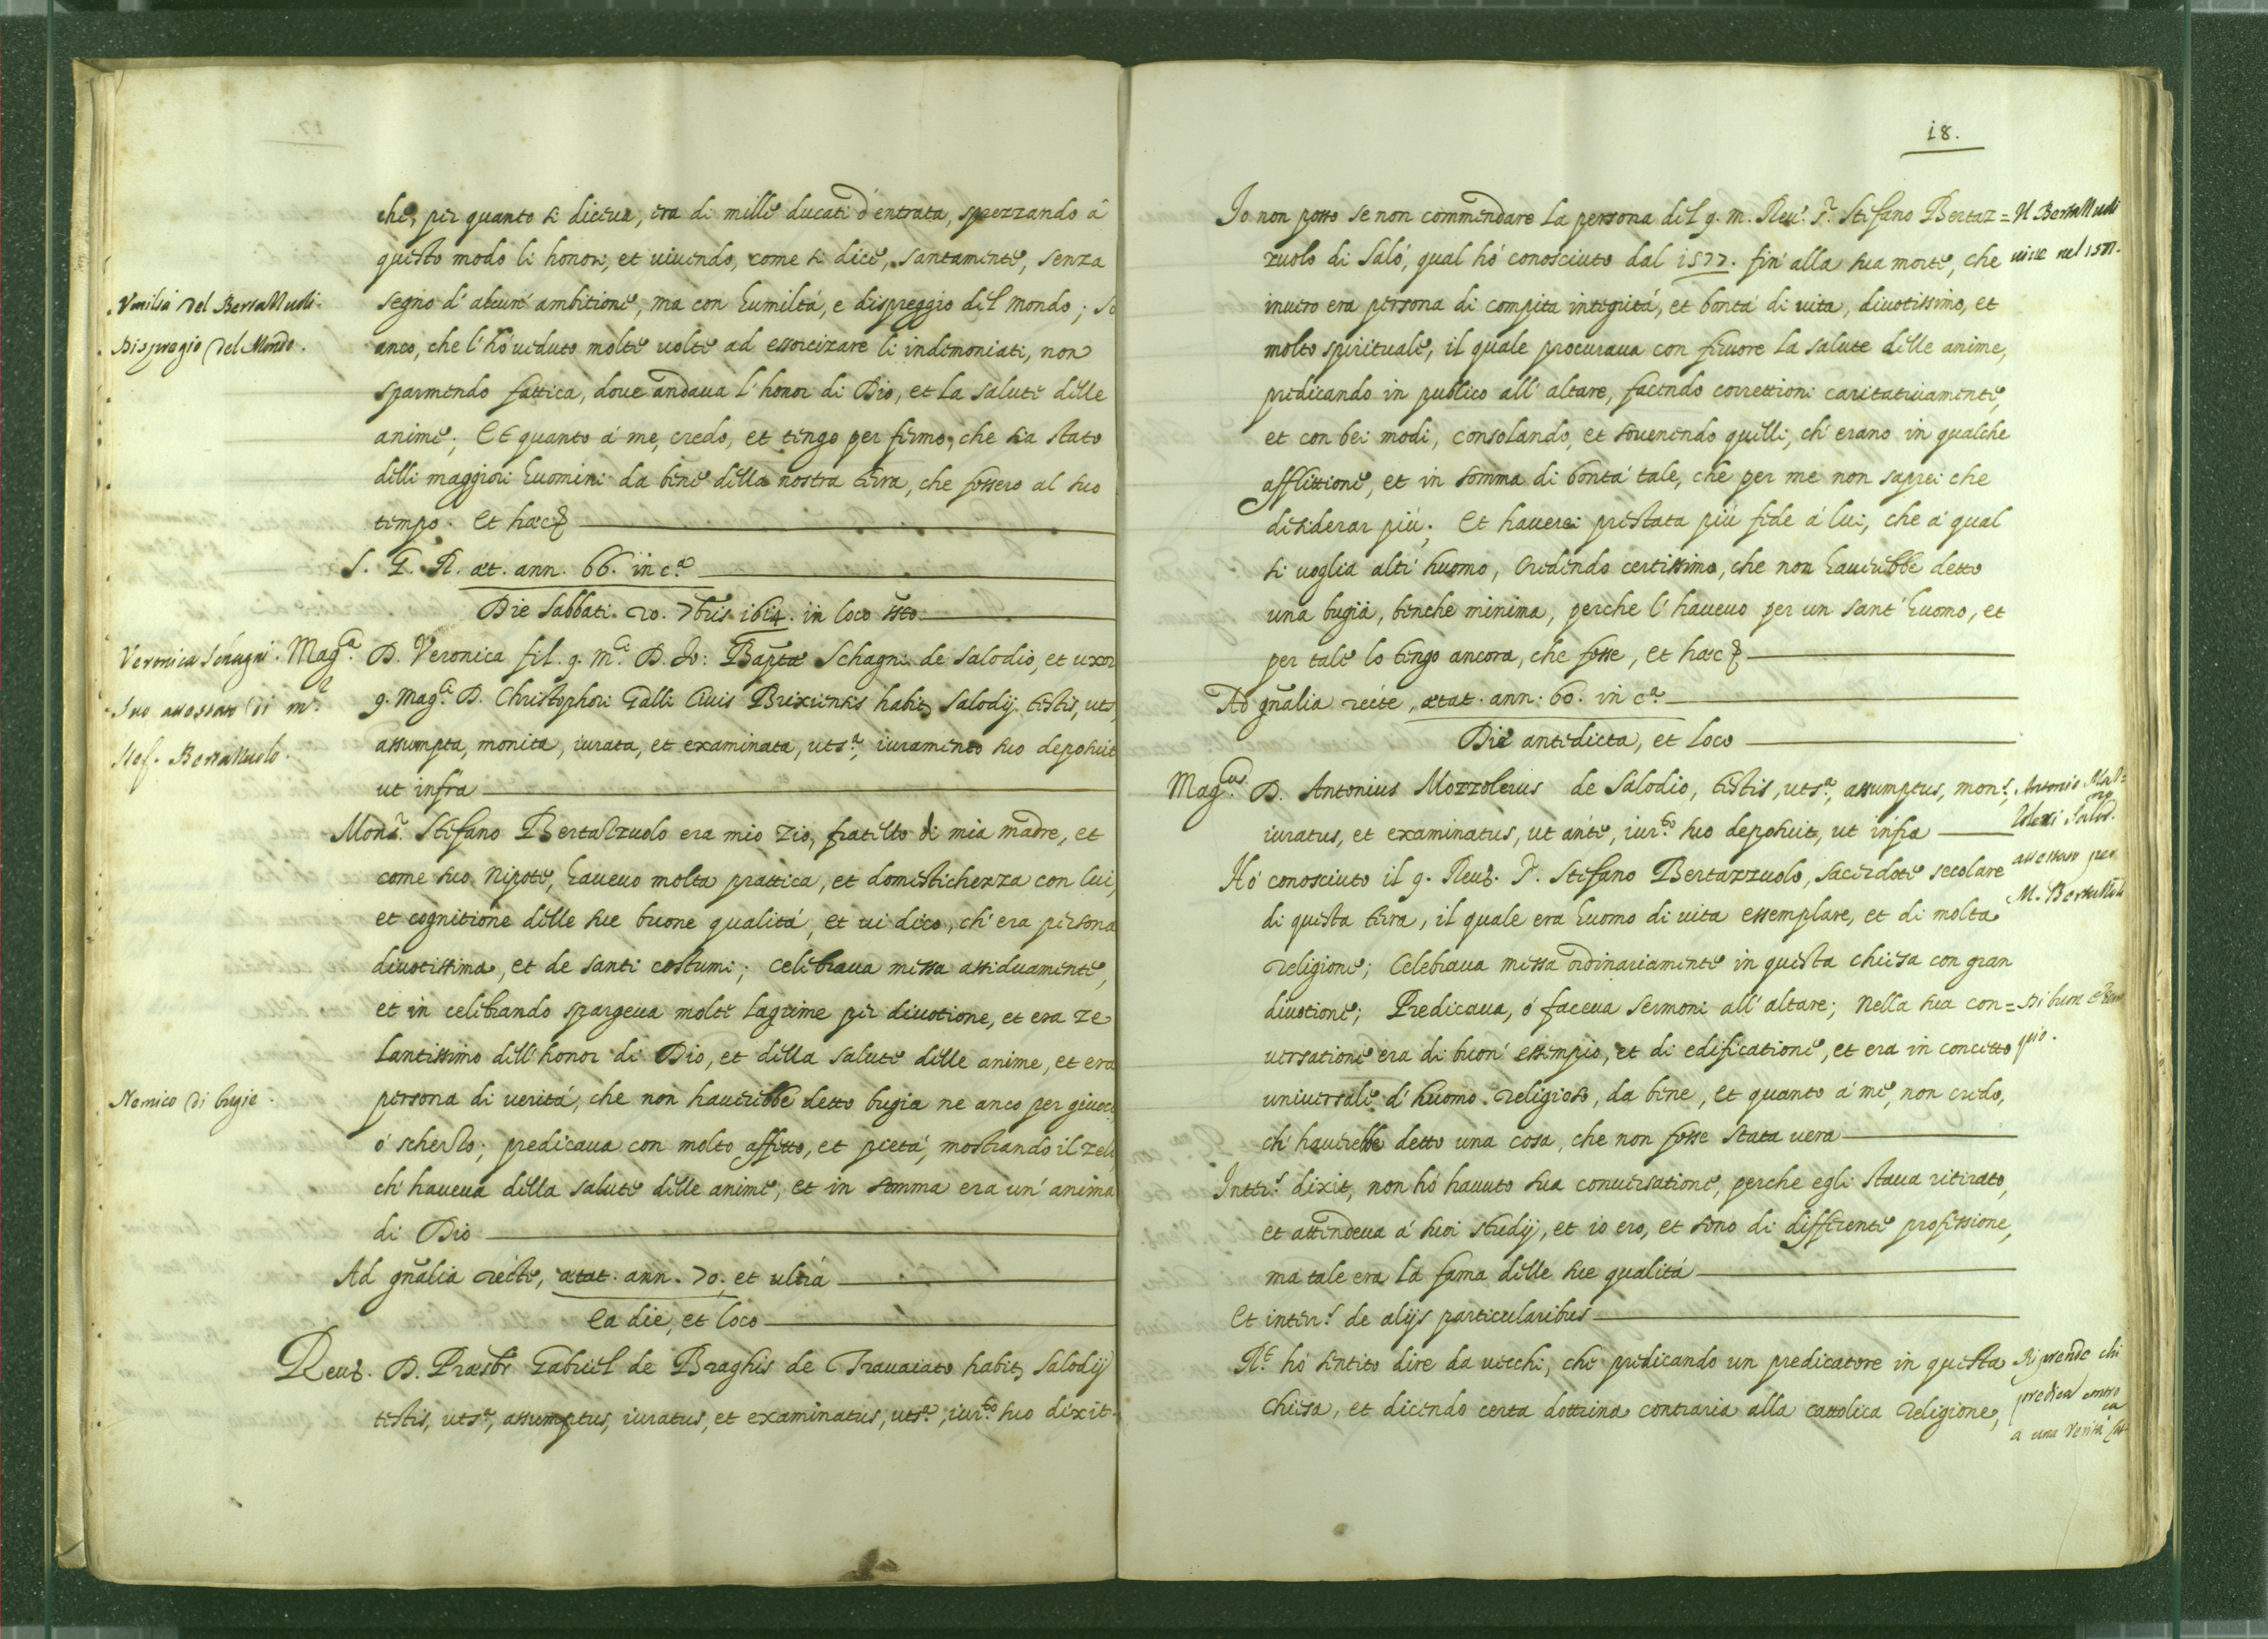 che, per quanto si diceua, era di mille ducati d'entrata, sprezzando à
questo modo li honori, et uiuendo, come si dice, santamente, senza
Vmiltà del Bertazzuoli.
segno d'alcun' ambitione, ma con humiltà, e dispreggio del mondo; so
Dispregio del Mondo.
anco, che l'hò ueduto molte uolte ad essorcizare li indemoniati, non
sparmendo fattica, doue andaua l'honor di Dio, et la salute delle
anime; Et quanto à me, credo, et tengo per fermo, che sia stato
delli maggiori huomini da bene della nostra terra, che fossero al suo
tempo. Et hæc
S. G. R. æt. ann. 66. in c.ª
Die Sabbati. 20. 7bris. 1614. in loco
Veronica Schagni.
Mag.ca D. Veronica fil. q. m.ci D. Jo: Bapta Schagni de Salodio, et uxor
q. Mag.ci D. Christophori Galli Ciuis Brixiensis habit. Salodij testis, uts,
Stef. Bertazzuolo.
assumpta, monita, iurata, et examinata, uts.ª, iuramento suo deposuit
ut infra
Mons.r Stefano Bertazzuolo era mio zio, fratello di mia madre, et
come suo Nipote, haueuo molta prattica, et domestichezza con lui,
et cognitione delle sue buone qualità, et ui dico, ch'era persona
diuotissima, et de santi costumi; celebraua messa assiduamente,
et in celebrando spargeua molte lagrime per diuotione, et era ze
lantissimo dell'honor di Dio, et della salute delle anime, et era
Nemico di bugie.
persona di uerità, che non hauerebbe detto bugia ne anco per giuoco
ò scherso; predicaua con molto affetto, et pietà, mostrando il zelo
ch'haueua della salute delle anime, et in somma era un'anima
di Dio
Ad gñalia recte, ætat. ann. 70. et ultra
Ea die, et loco
Reud. D. Præsbr Gabriel de Braghis de Trauaiato habit. Salodij
testis, uts.ª, assumptus, iuratus, et examinatus, uts.ª, iur.to suo dixit.
18.
Io non posso se non commendare la persona del q. m. Reu. P. Stefano Bertaz=
Il Bertazzuoli
zuolo di Salò, qual hò conosciuto dal 1577. fin'alla sua morte, che
uisse nel 1577.
inuero era persona di compita integrità, et bontà di uita, diuotissimo, et
molto spirituale, il quale procuraua con feruore la salute delle anime,
predicando in publico all'altare, facendo correttioni caritatiuamente,
et con bei modi, consolando, et souenendo quelli, ch'erano in qualche
afflittione, et in somma di bontà tale, che per me non saprei che
desiderar più. Et hauerei prestata più fede à lui, che à qual
si uoglia altr'huomo, credendo certissimo, che non hauerebbe detto
una bugia, benche minima, perche l'haueuo per un sant'huomo, et
per tale lo tengo ancora, che fosse, et hæc
Ad gñalia recte, ætat. ann. 60. in c.ª
Die antedicta, et loco
Mag.cus D. Antonius Mozzolerius de Salodio, testis, uts.ª, assumptus, mon.s,
iuratus, et examinatus, ut ante, iur.to suo deposuit, ut infra
Hò conosciuto il q. Reud. P. Stefano Bertazzuolo, sacerdote secolare
di questa terra, il quale era huomo di uita essemplare, et di molta
religione; Celebraua messa ordinariamente in questa chiesa con gran
diuotione; Predicaua, ò faceua sermoni all'altare; Nella sua con=
Di buon esem
uersatione era di buon'essempio, et di edificatione, et era in concetto
pio.
uniuersale d'huomo religioso, da bene, et quanto à me, non credo,
ch'hauerebbe detto una cosa, che non fosse stata uera
Inter.s dixit, non hò hauuto sua conuersatione, perche egli staua ritirato,
et attendeua à suoi studij, et io ero, et sono di differente professione,
ma tale era la fama delle sue qualità
Et inter.s de alijs particularibus
R.t hò sentito dire da uecchi, che predicando un predicatore in questa
Riprende chi
chiesa, et dicendo certa dottrina contraria alla cattolica religione,
predica contro
a una Verità Cat-
ca